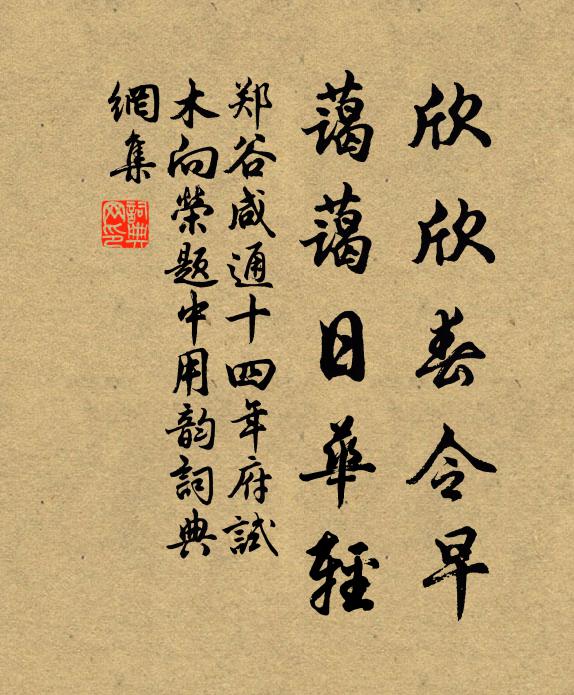 欣欣春令早
藹藹日華輕
郑谷咸通十四年府試
木向榮題中用韵詞典
網集
詞典
网印